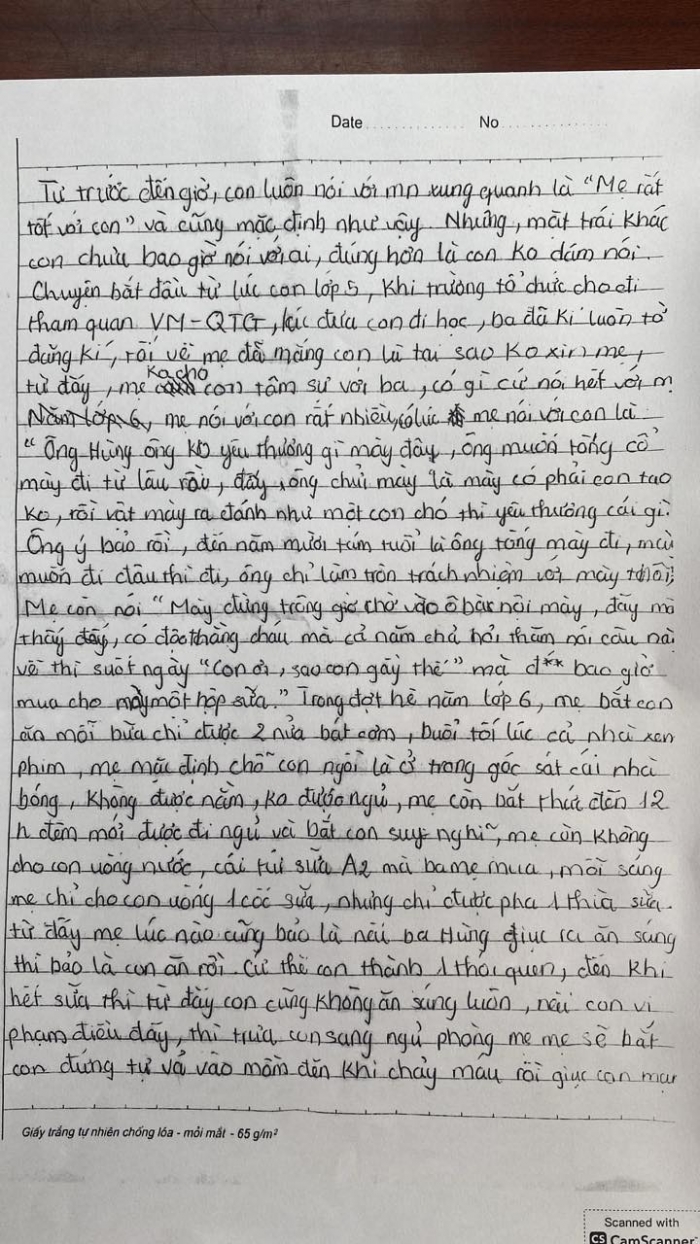 Date No
Từ trước đến giờ, con luôn nói với mn xung quanh là "Mẹ rất
tốt với con" và cũng mặc định như vậy. Nhưng, mặt trái khác
con chưa bao giờ nói với ai, đúng hơn là con ko dám nói.
Chuyện bắt đầu từ lúc con lớp 5, khi trường tổ chức cho đi
tham quan VM-QTG, lúc đưa con đi học, ba đã kí luôn tờ
đăng kí, rồi về mẹ đã mắng con là tại sao ko xin mẹ,
từ đấy, mẹ ko cho con tâm sự với ba, có gì cứ nói hết với m
Năm lớp 6, mẹ nói với con rất nhiều, có lúc mẹ nói với con là
"Ông Hùng ông ko yêu thương gì mày đâu, ông muốn tống cổ
mày đi từ lâu rồi, đấy, ông chửi mày là mày có phải con tao
ko, rồi vật mày ra đánh như một con chó thì yêu thương cái gì.
Ông ý bảo rồi, đến năm mười tám tuổi là ông tống mày đi, mà
muốn đi đâu thì đi, ông chỉ làm tròn trách nhiệm với mày thôi"
Mẹ còn nói "Mày đừng trông giờ chờ vào ô bà nội mày, đấy mà
thấy đấy, có độc thằng cháu mà cả năm chả hỏi thăm nói câu nà
về thì suốt ngày "Con ơi, sao con gầy thế" mà đ** bao giờ
mua cho mày một hộp sữa." Trong đợt hè năm lớp 6, mẹ bắt con
ăn mỗi bữa chỉ được 2 nửa bát cơm, buổi tối lúc cả nhà xem
phim, mẹ mặc định chỗ con ngồi là ở trong góc sát cái nhà
bóng, không được nằm, ko được ngủ, mẹ còn bắt thức đến 12
h đêm mới được đi ngủ và bắt con suy nghĩ, mẹ còn không
cho con uống nước, cái túi sữa A2 mà ba mẹ mua, mỗi sáng
mẹ chỉ cho con uống 1 cốc sữa, nhưng chỉ được pha 1 thìa sữa.
từ đấy mẹ lúc nào cũng bảo là nếu ba Hùng giục ra ăn sáng
thì bảo là con ăn rồi. Cứ thế con thành 1 thói quen, đến khi
hết sữa thì từ đấy con cũng không ăn sáng luôn, nếu con vi
phạm điều đấy, thì trưa con sang ngủ phòng mẹ mẹ sẽ bắt
con đứng tự vả vào mồm đến khi chảy máu rồi giục con mau
Giấy trắng tự nhiên chống lóa - mỏi mắt - 65 g/m²
Scanned with
CS CamScanner